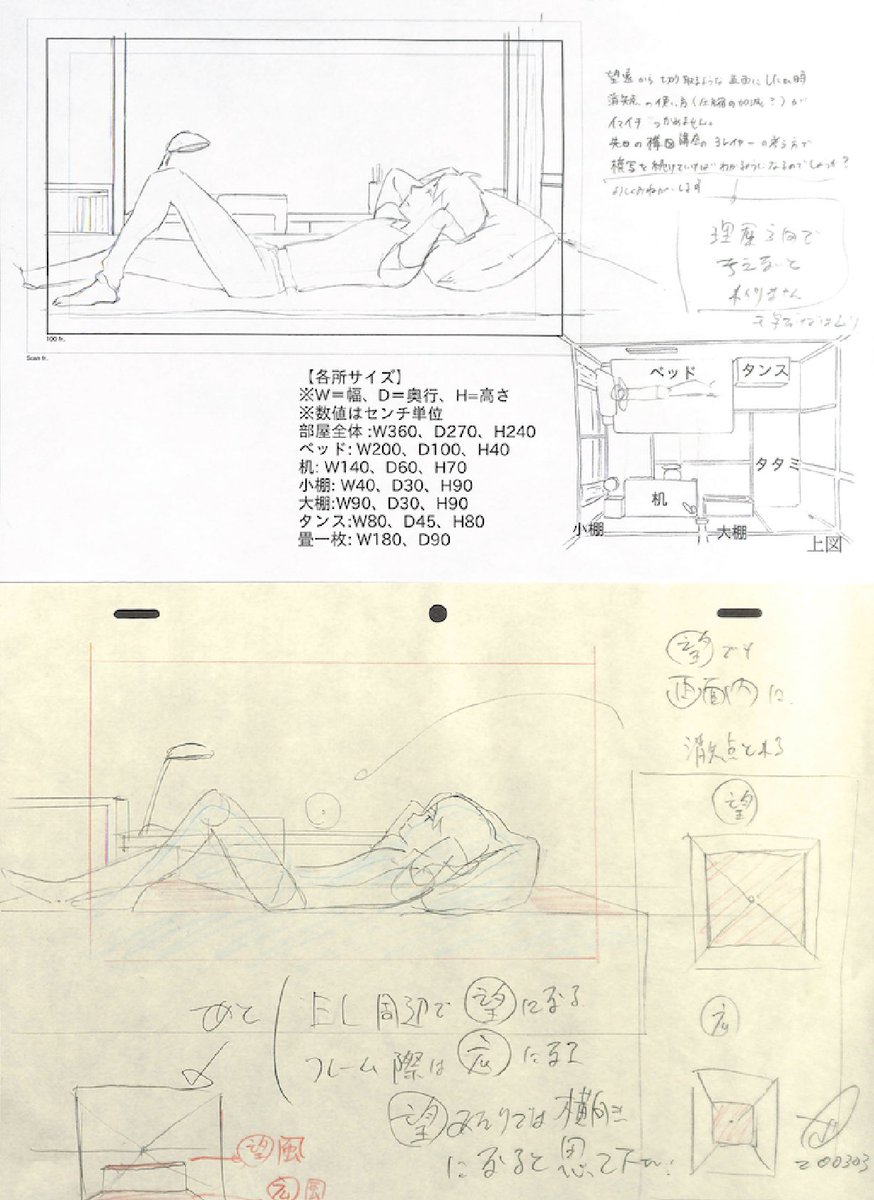 望遠から切り取るような画面にした時
消失点の使い方(圧縮の加減?)が
イマイチつかめません。
先日の構図講座の3レイヤーの考え方で
模写を続けていけばわかるようになるのでしょうか?
よろしくおねがいします
理屈
考えないと
100 fr.
Scan fr.
【各所サイズ】
※W=幅、D=奥行、H=高さ
※数値はセンチ単位
部屋全体:W360、D270、H240
ベッド:W200、D100、H40
机:W140、D60、H70
小棚:W40、D30、H90
大棚:W90、D30、H90
タンス:W80、D45、H80
畳一枚:W180、D90
ベッド
タンス
タタミ
机
小棚
大棚
上図
望でも
画面内に
消失点とれる
望
広
あと
EL周辺で望になる
フレーム際は広になる
望みんりでは横向き
になると思って下さい
望風
広風
200303